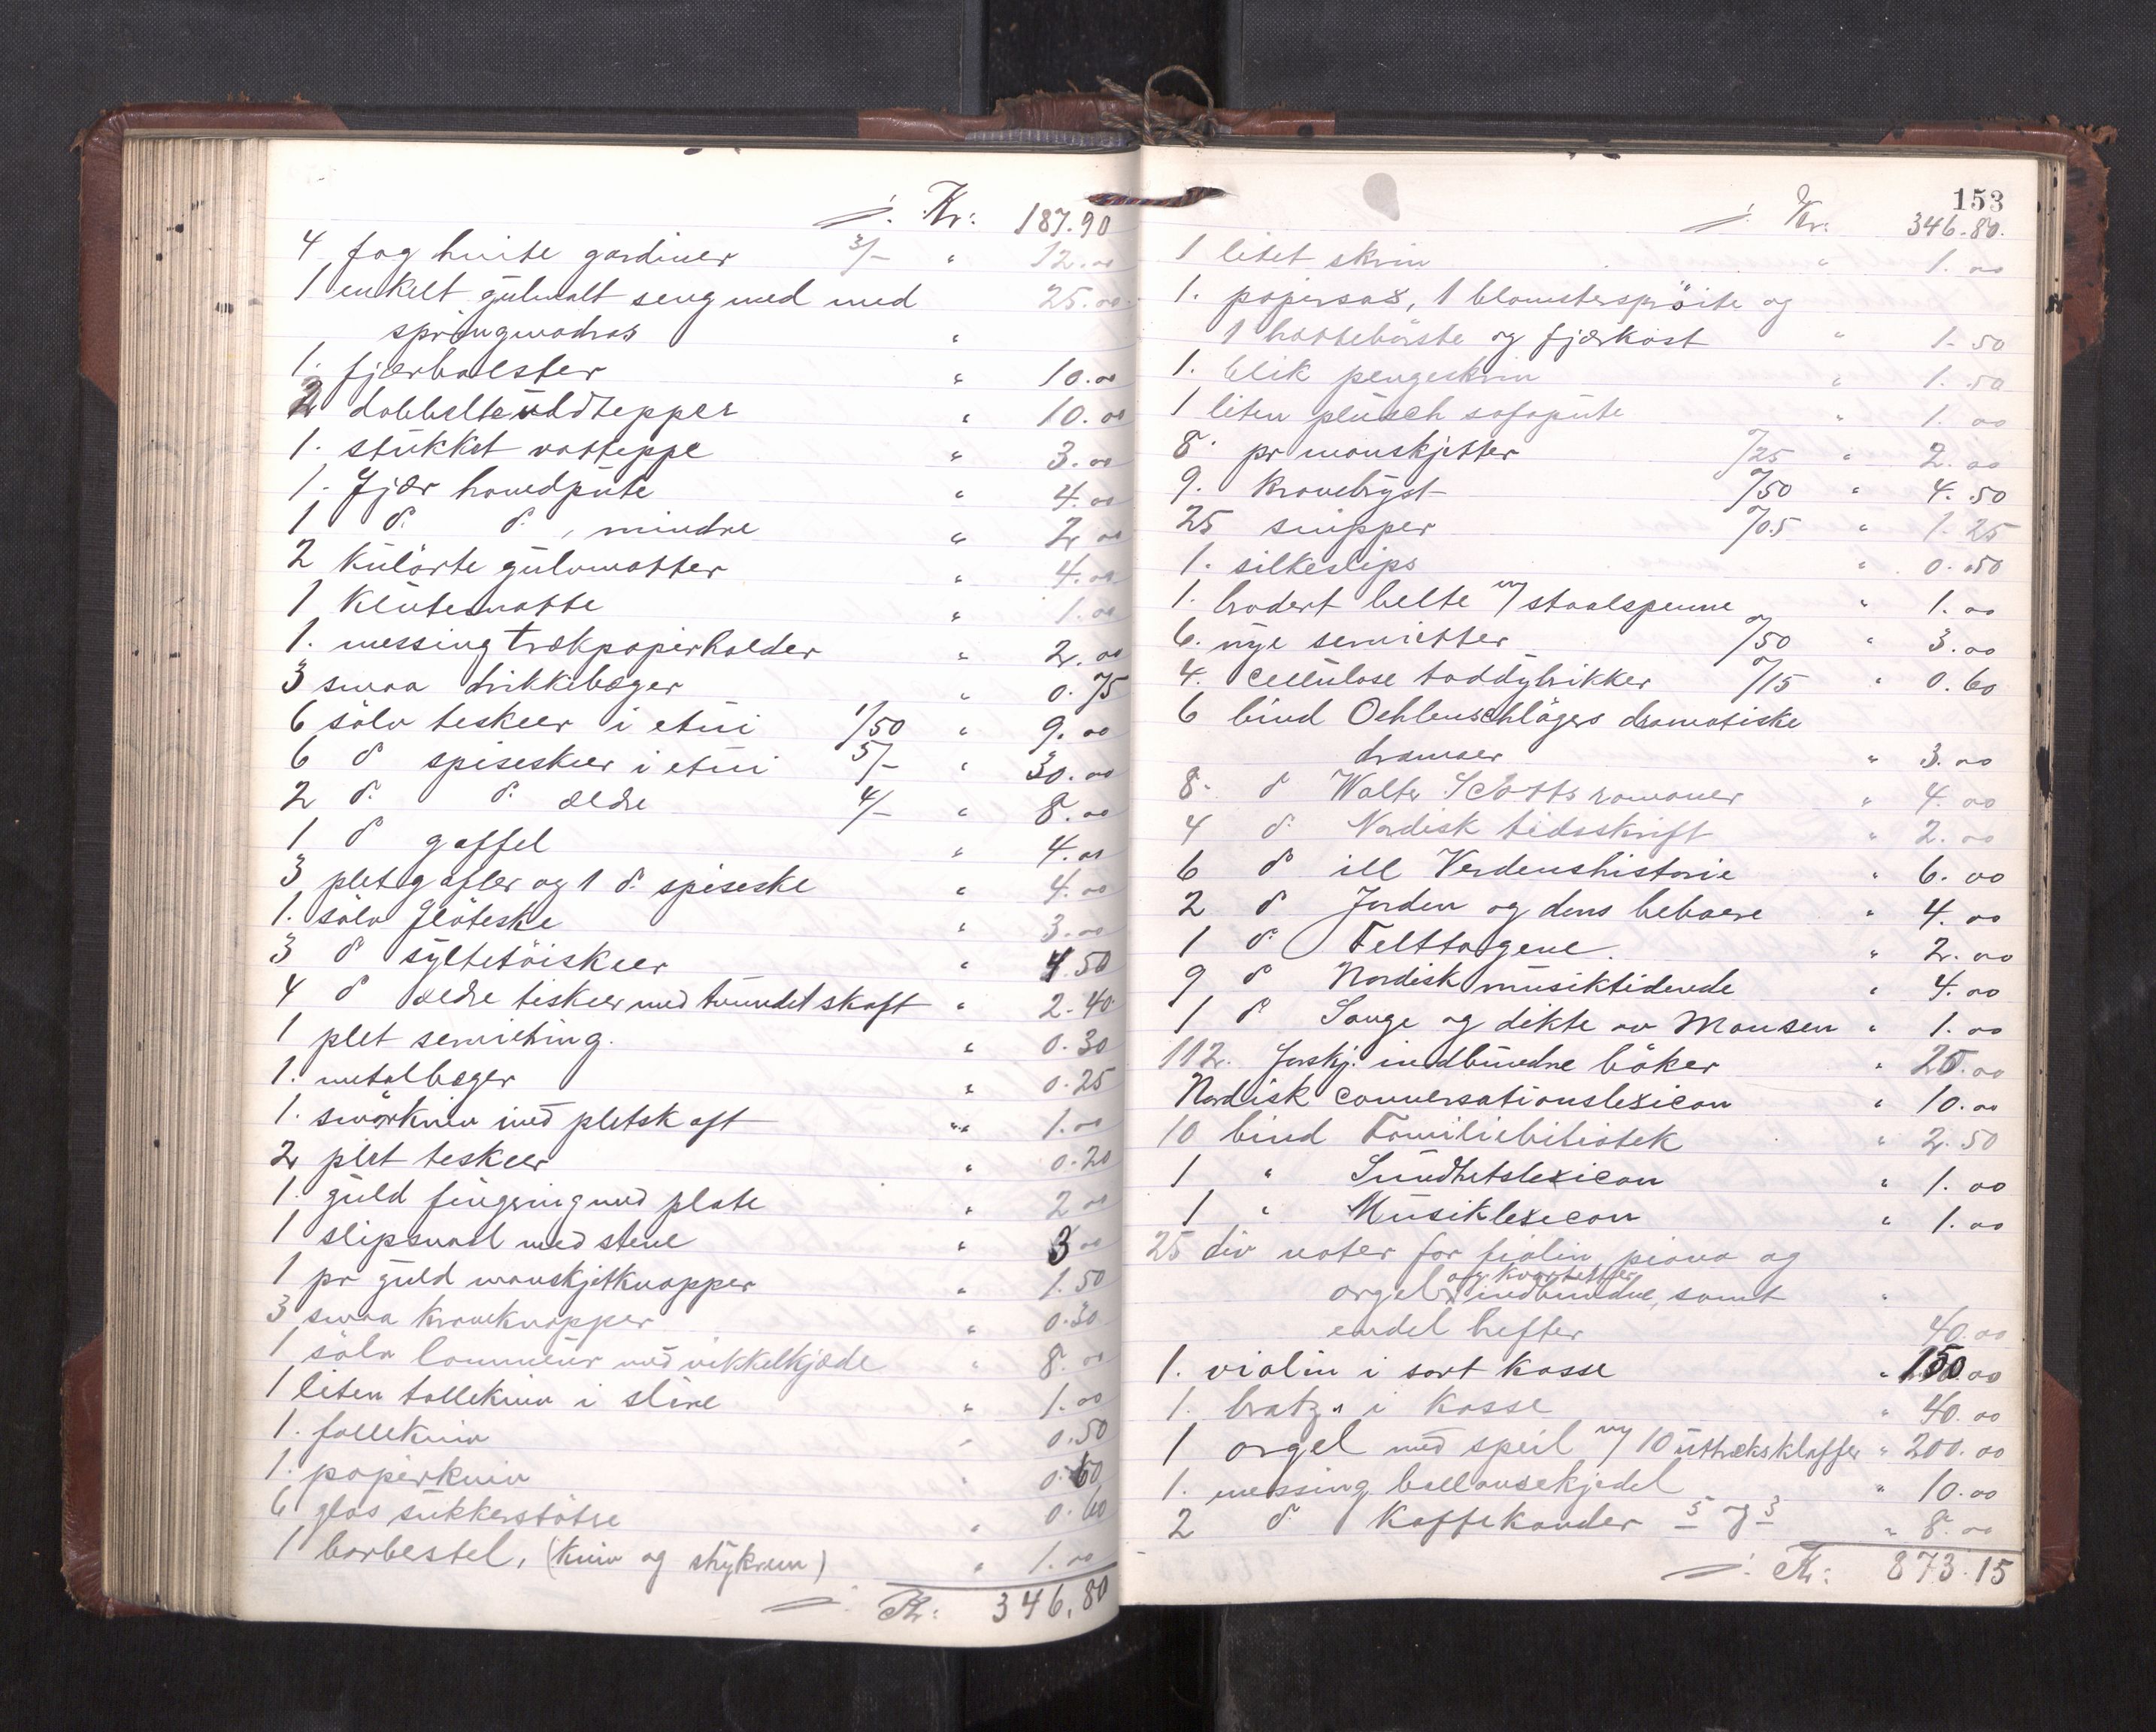 ./. Kr: 187.90
4 fag hvite gardiner 3/- " 12.00
1 enkelt gulmalt seng med med 25.00
springmadras "
1. fjærbolster " 10.00
2 dobbelte uldtepper " 10.00
1. stukket vatteppe " 3.00
1. Fjær hovedpute " 4.00
1 do. do., mindre " 2.00
2 kulørte gulvmatter " 4.00
1 Klutematte " 1.00
1. messing trækpapirholder " 2.00
3 smaa drikkebæger " 0.75
6 sølv teskeer i etui 1/50 " 9.00
6 do spiseskeer i etui 5/- " 30.00
2 do. do. ældre 4/- " 8.00
1 do gaffel " 4.00
3 pletgafler og 1 do. spiseske " 4.00
1. sølv fløteske " 3.00
3 do syltetöiskeer " 4.50
4 do ældre teskeer med tvundet skaft " 2.40
1 plet servietring. " 0.30
1. metalbæger " 0.25
1. smørkniv med pletskaft " 1.00
2 plet teskeer " 0.20
1. guld fingering med plate " 2.00
1 slipsnaal med stene " 3.00
1 pr guld manskjetknapper " 1.50
3 smaa kraveknapper " 0.30
1 sølv lommeur med nikkelkjæde " 8.00
1 liten tollekniv i slire " 1.00
1. follekniv " 0.50
1. papirkniv " 0.60
6 glas sukkerstøtre " 0.60
1 barbestel, (kniv og strykrem) " 1.00
./. Kr: 346,80
153
./. Kr: 346.80.
1 litet skrin " 1.00
1. papirsax, 1 blomstersprøite og
1 hattebørste og fjærkost " 1.50
1. blik pengeskrin " 1.50
1 liten plüsch sofapute " 1.00
8. pr manskjetter 0/25 " 2.00
9. Kravebryst 0/50 " 4.50
25 snipper 0/05 " 1.25
1. silkeslips " 0.50
1. brodert belte m/ staalspenne " 1.00
6. nye servietter 0/50 " 3.00
4. cellulose toddybrikker 0/15 " 0.60
6 bind Oehlenschlägers dramatiske
dramaer " 3.00
8. do Walter Scotts romaner " 4.00
4 do. Nordisk tidsskrift " 2.00
6 do ill Verdenshistorie " 6.00
2 do Jorden og dens beboere " 4.00
1 do. Felttogene. " 2.00
9 do Nordisk musiktidende " 4.00
1 do Sange og dikte av Monsen " 1.00
112. forskj. indbundne bøker " 25.00
Nordisk conversationslexicon " 10.00
10 bind Familiebibliotek " 2.50
1 " Sundhetslexicon " 1.00
1 " Musiklexicon " 1.00
25 div noter for fiolin piano og
orgel og kvartetter indbundne, samt "
endel hefter 40.00
1. violin i sort kasse " 150.00
1. bratz i Kasse " 40.00
1 orgel med speil m/ 10 uttræksklaffer " 200.00
1. messing ballansekjedel " 10.00
2 do Kaffekander 5 og 3 " 8.00
./. Kr: 873.15